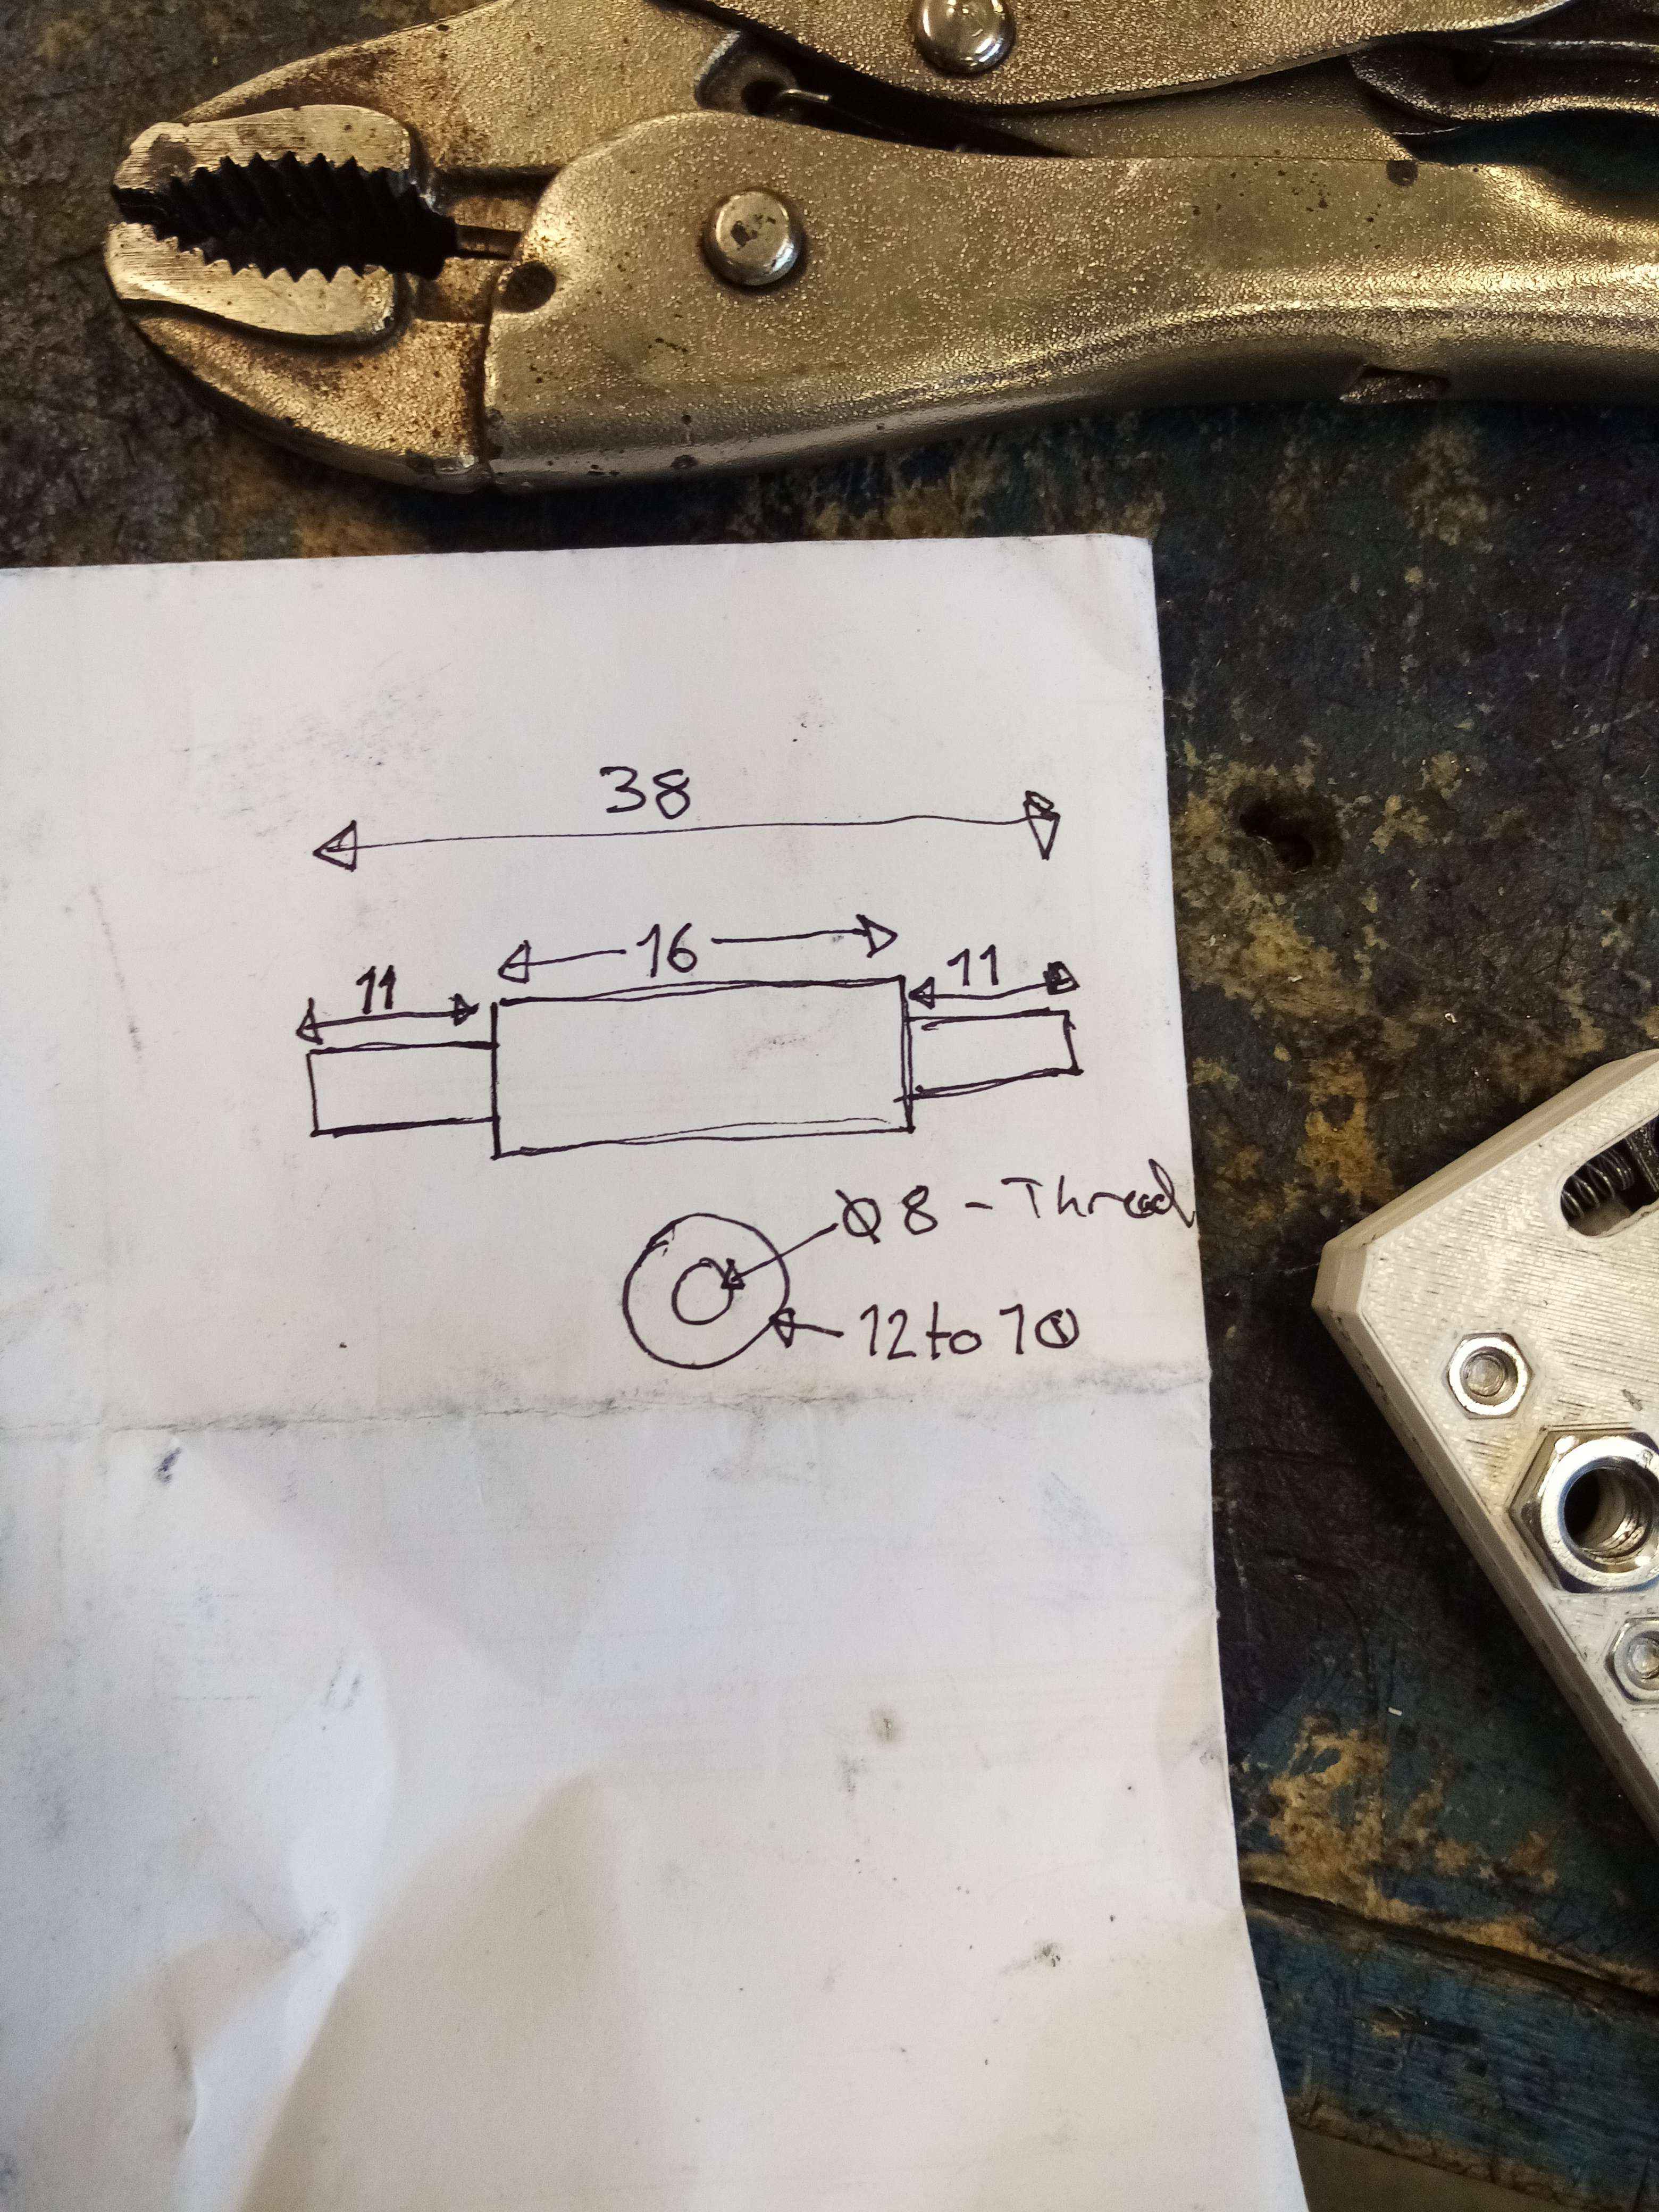 38
16
11
11
Ø8 - Thread
12 to 10